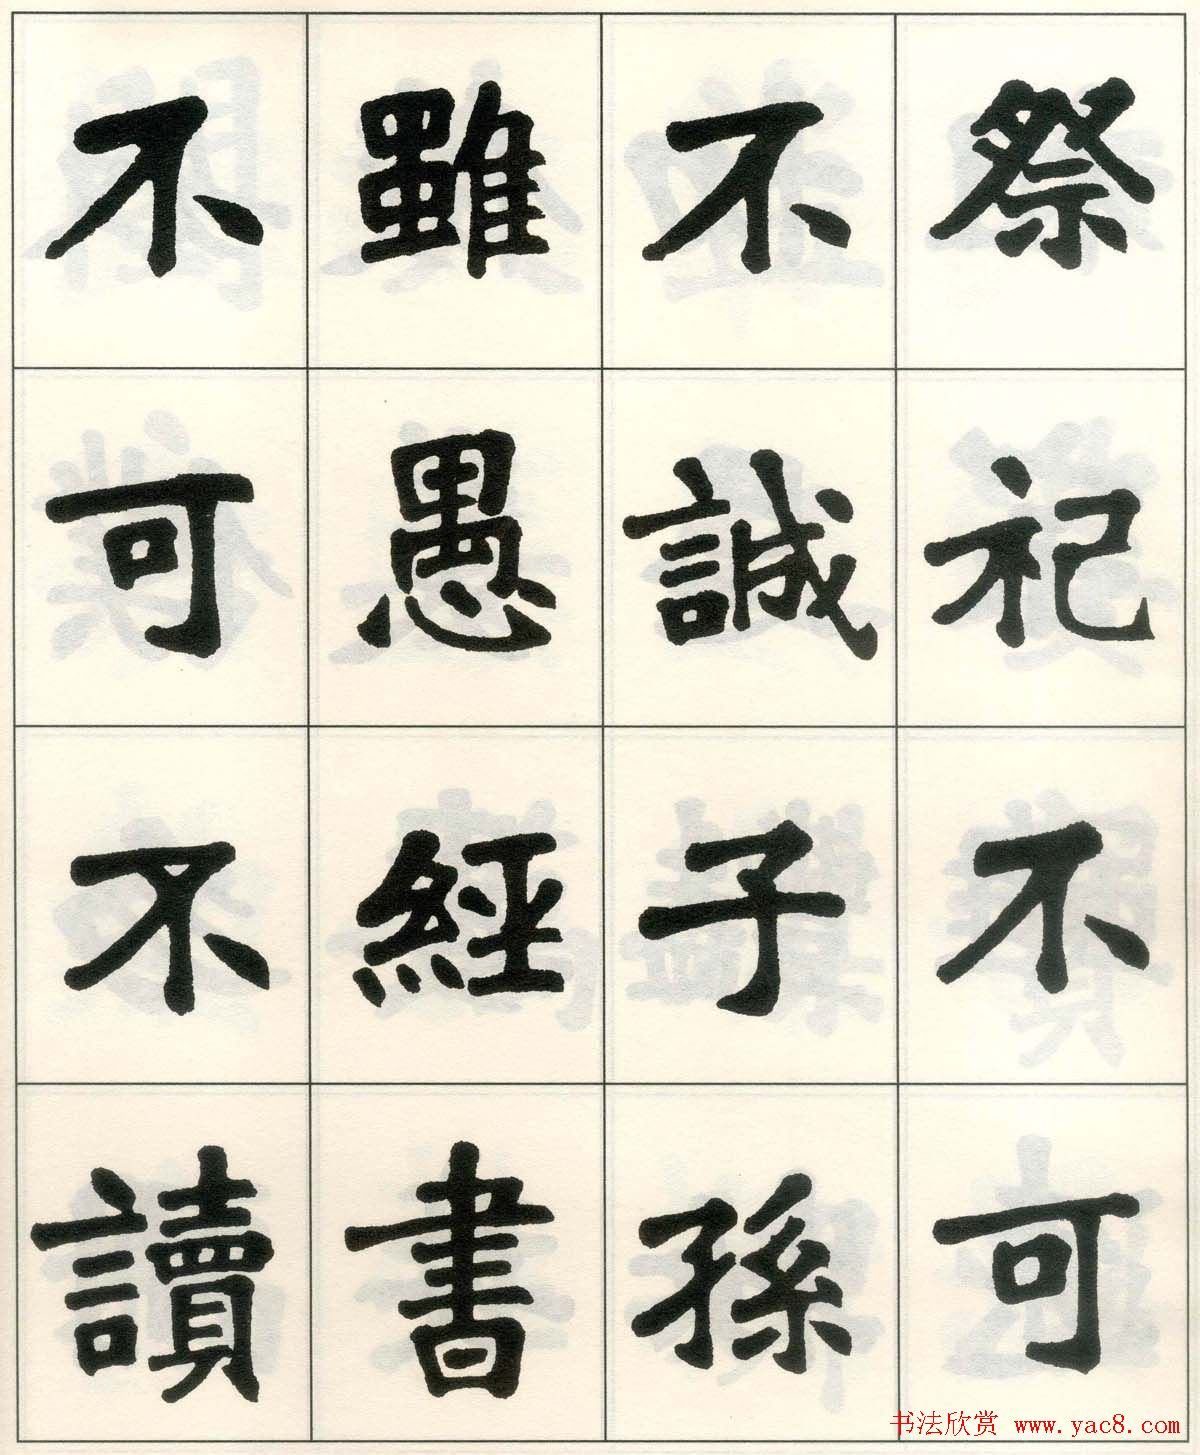 祭祀不可
不誠子孫
雖愚經書
不可不讀
书法欣赏 www.yac8.com